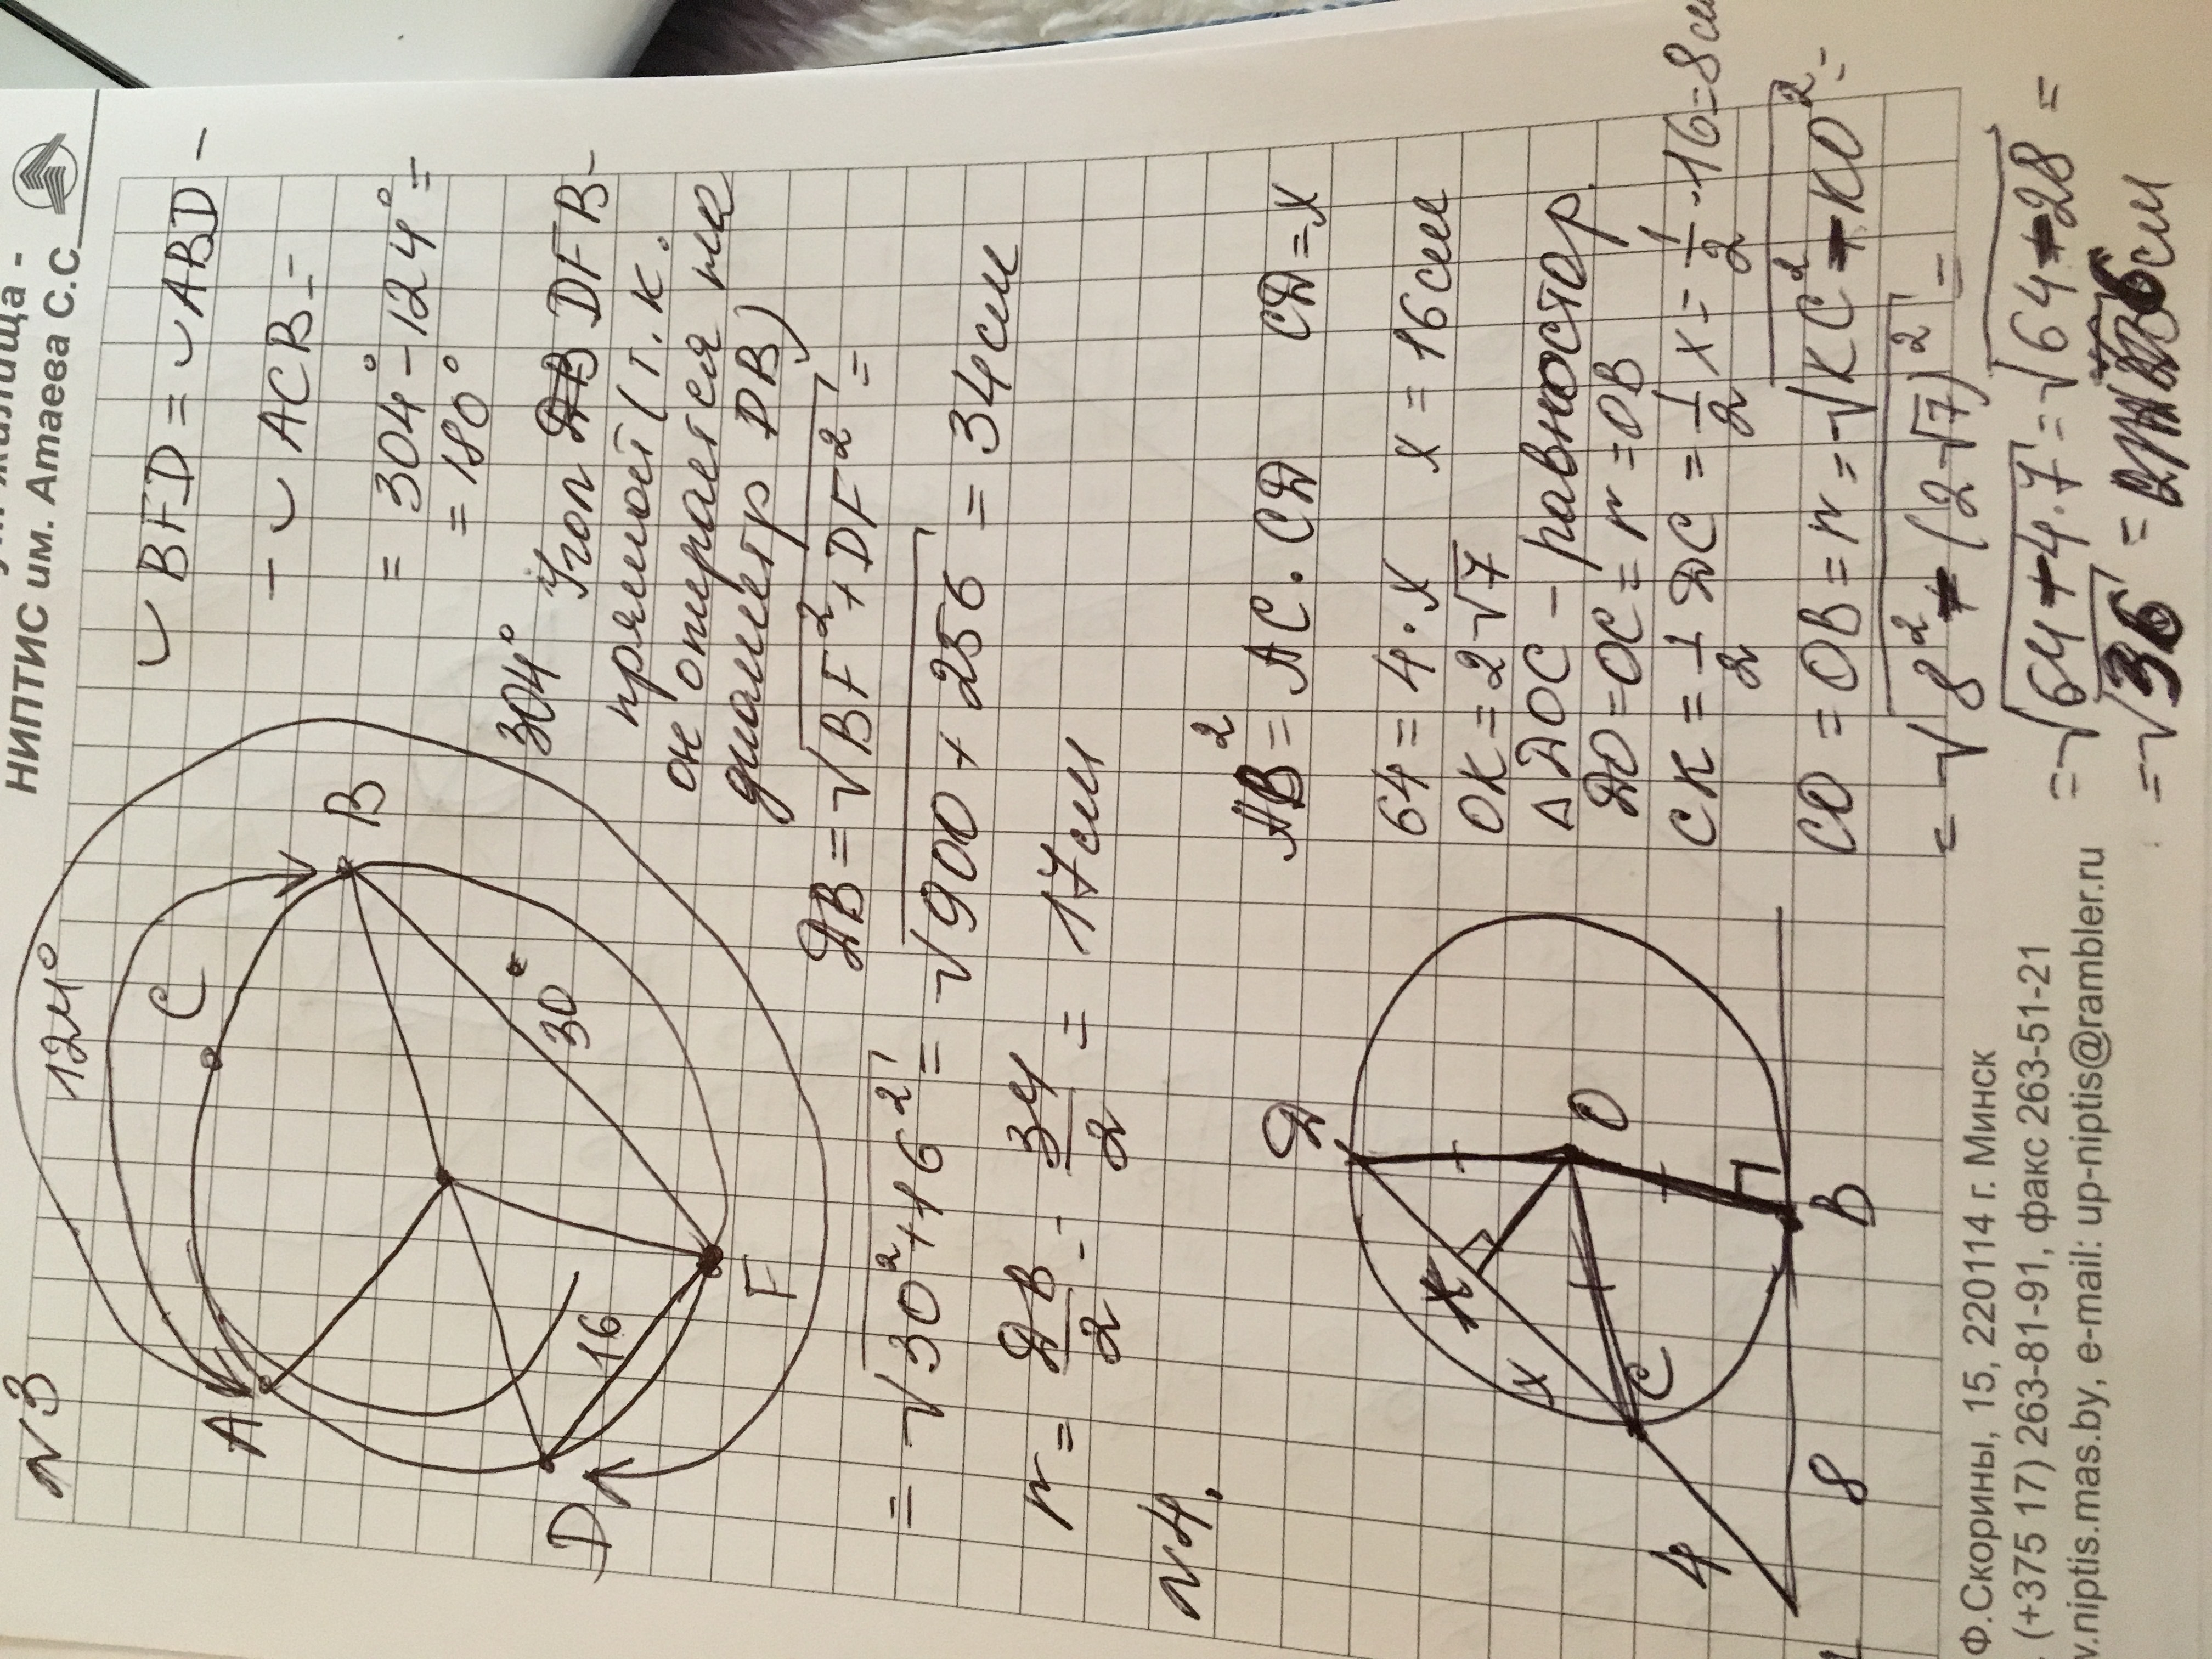 НИПТИС им. Атаева С.С.
N3
124°
C
B
A
D
F
30
16
304°
◡ BFD = ◡ ABD -
- ◡ ACB =
= 304° - 124° =
= 180°
Угол DFB -
прямой (т.к.
он опирается на
диаметр DB)
DB = √BF² + DF² =
= √30² + 16² = √900 + 256 = 34 см
r = DB/2 = 34/2 = 17 см
N4.
AB² = AC · CD CD = x
64 = 4 · x x = 16 см
OK = 2√7
Δ DOC - равностор.
DO = OC = r = OB
CK = 1/2 DC = 1/2 x = 1/2 · 16 = 8 см
CO = OB = r = √KC² + KO² =
= √8² + (2√7)² =
= √64 + 4 · 7 = √64 + 28 =
= √36 = 6 см
D
K
O
x
C
B
4
8
Ф.Скорины, 15, 220114 г. Минск
(+375 17) 263-81-91, факс 263-51-21
v.niptis.mas.by, e-mail: up-niptis@rambler.ru